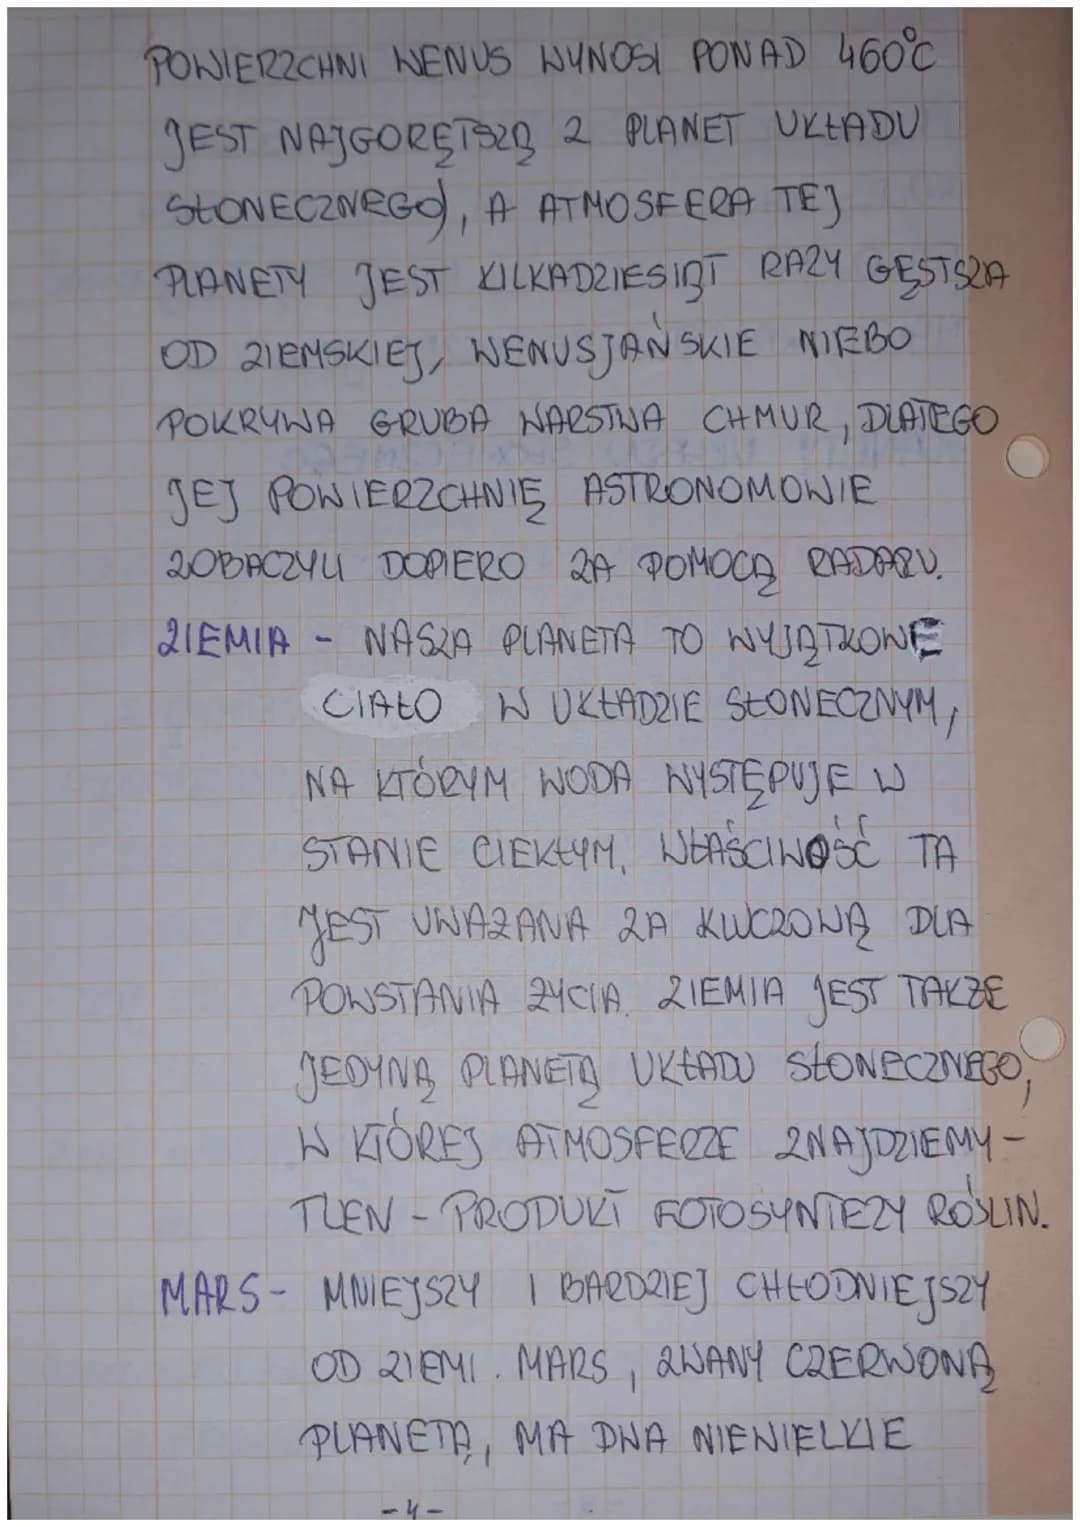 POWIERZCHNI WENUS WYNOSI PONAD 460°C
JEST NAJGORĘTSZĄ Z PLANET UKŁADU
SŁONECZNEGO), A ATMOSFERA TEJ
PLANETY JEST KILKADZIESIĄT RAZY GĘSTSZA
OD ZIEMSKIEJ, WENUSJAŃSKIE NIEBO
POKRYWA GRUBA WARSTWA CHMUR, DLATEGO
JEJ POWIERZCHNIĘ ASTRONOMOWIE
ZOBACZYLI DOPIERO ZA POMOCĄ RADARU.
ZIEMIA - NASZA PLANETA TO WYJĄTKOWE
CIAŁO W UKŁADZIE SŁONECZNYM,
NA KTÓRYM WODA WYSTĘPUJE W
STANIE CIEKŁYM. WŁAŚCIWOŚĆ TA
JEST UWAZANA ZA KLUCZOWĄ DLA
POWSTANIA ZYCIA. ZIEMIA JEST TAKZE
JEDYNĄ PLANETĄ UKŁADU SŁONECZNEGO,
W KTÓREJ ATMOSFERZE ZNAJDZIEMY -
TLEN - PRODUKT FOTOSYNTEZY ROŚLIN.
MARS - MNIEJSZY I BARDZIEJ CHŁODNIEJSZY
OD ZIEMI. MARS, ZWANY CZERWONĄ
PLANETĄ, MA DWA NIEWIELKIE
-4-